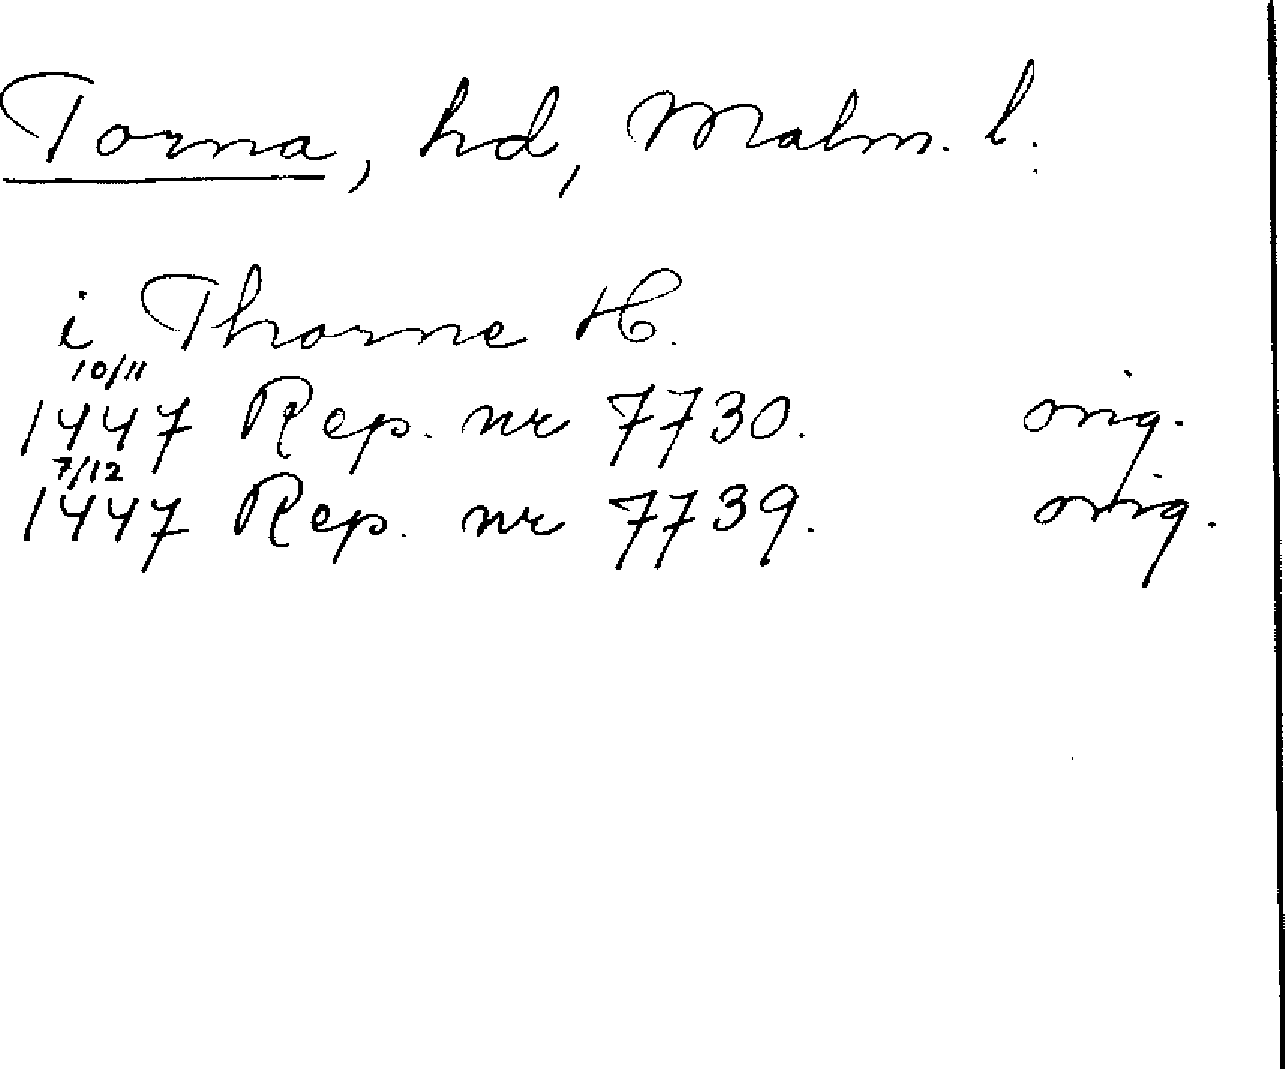 Torna, hd, Malm. l.
i Thorne H.
10/11
1447 Rep. nr 7730. orig.
7/12
1447 Rep. nr 7739. orig.